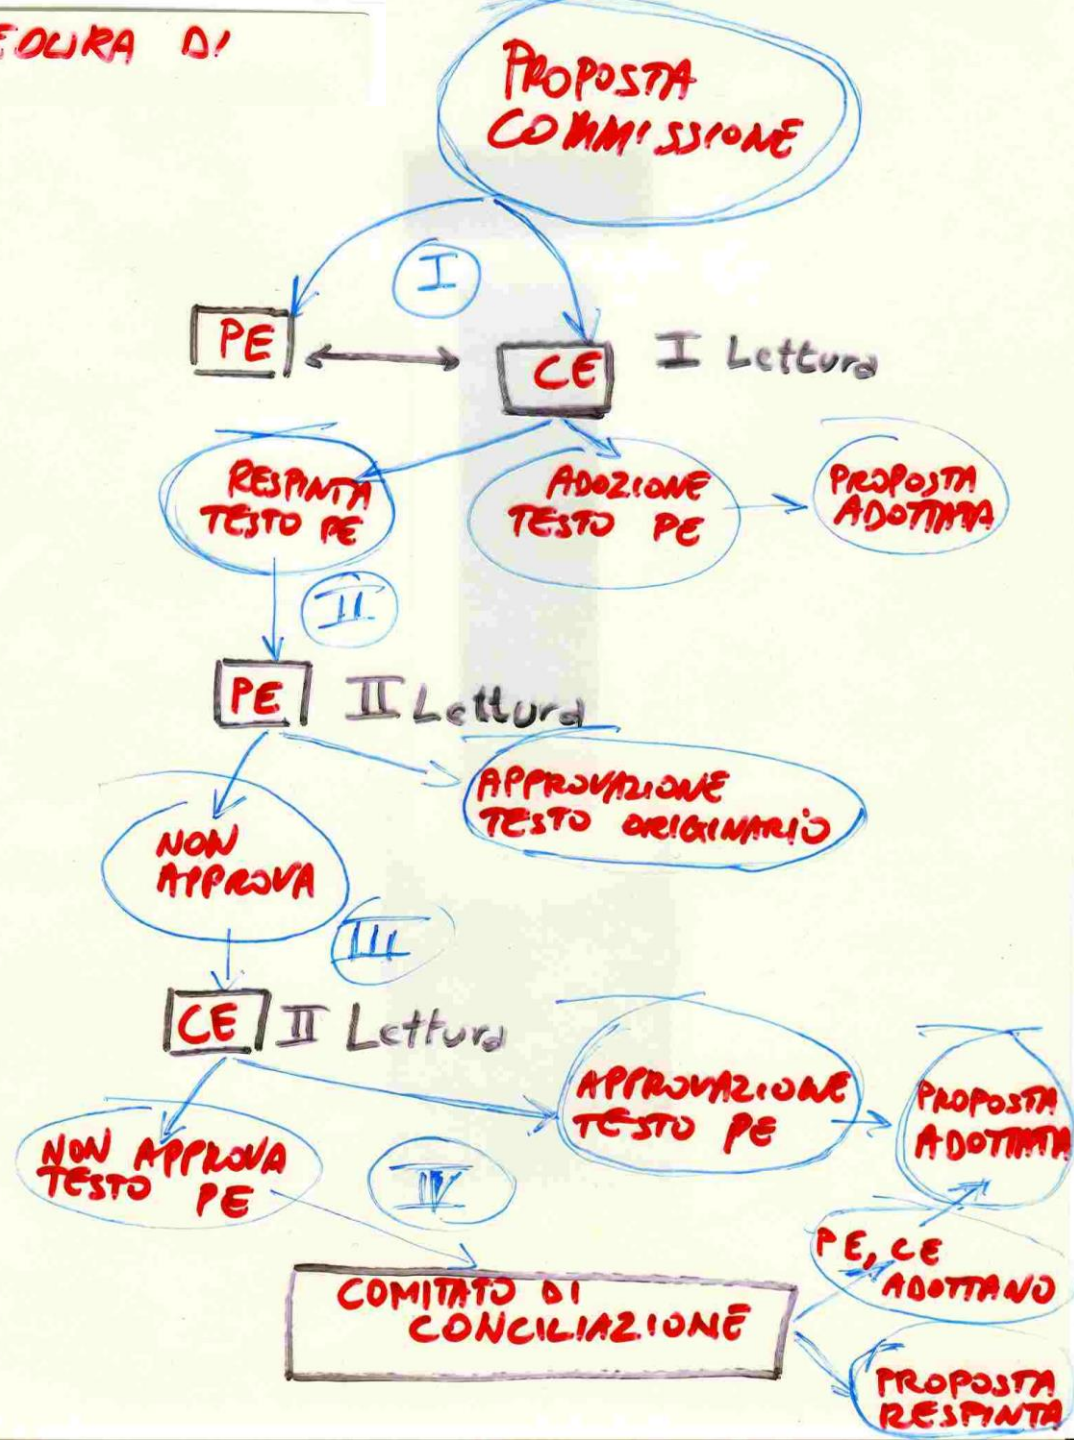 EDURA DI
PROPOSTA
COMMISSIONE
I
PE
CE
I Lettura
RESPINTA
TESTO PE
ADOZIONE
TESTO PE
PROPOSTA
ADOTTATA
II
PE
II Lettura
APPROVAZIONE
TESTO ORIGINARIO
NON
APPROVA
III
CE
II Lettura
APPROVAZIONE
TESTO PE
PROPOSTA
ADOTTATA
NON APPROVA
TESTO PE
IV
PE, CE
ADOTTANO
COMITATO DI
CONCILIAZIONE
PROPOSTA
RESPINTA